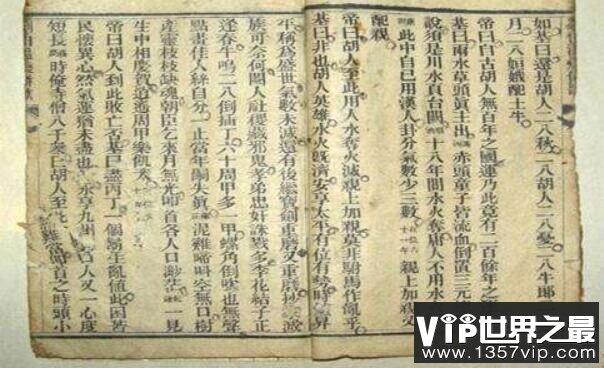 如基曰還是胡人二八秋二八胡人二八憂二八牛郎
月二八姮娥配土牛
帝曰自古胡人無百年之國運乃此竟有二百餘年之
基曰雨水草頭真主出赤頭童子皆流血倒置三元
說須是川水頁台闕十八年間水火奪庸人不用水
此中自己用漢人卦分氣數少三數親上加親又
配親
帝曰胡人至此用人水奪火滅親上加親莫非駙馬作亂乎
基曰非也胡人英雄水火既濟安享太平有位有勢時昇
平稱為盛世氣數未滅還有後繼寶劍重磨又重磨抄滅
族可奈何閹人社稷藏邪鬼孝弟忠奸誅戮多李花結子正
逢春牛鳴二八倒插丁六十周甲多一甲螺角倒吹也無聲
點畫佳人絲自分一止當年嗣失真泥雞啼叫空無口樹
產靈枝枝缺魂朝臣乞來月無光叩首各人口渺茫一見
生中相慶賀逍遙周甲樂飢荒
帝曰胡人到此敗亡否基曰生亂值此困苦
民懷異心然氣運猶未盡也永享九州人又一心度
短長時俺寺僧八千眾曰胡人至此開首之時頭小
VIP世界之最
www.1357vip.com